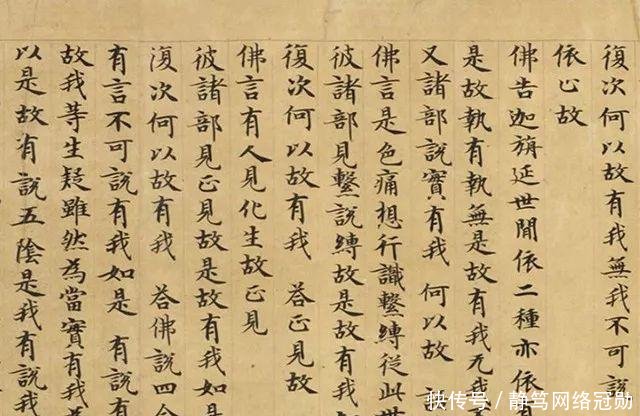 復次何以故有我無我不可說
依止故
佛告迦旃延世間依二種亦依有
是故執有執無是故有我无我
又諸部說實有我 何以故
佛言是色痛想行識繫縛從此世
彼諸部見繫說縛故是故有我
復次何以故有我 荅正見故
佛言有人見化生故正見
彼諸部見正見故是故有我如是
復次何以故有我 荅佛說四
有言不可說有我如是 有說有
故我等生疑雖然為當實有我
以是故有說五陰是我有說我
快传号／静笃网络冠勋